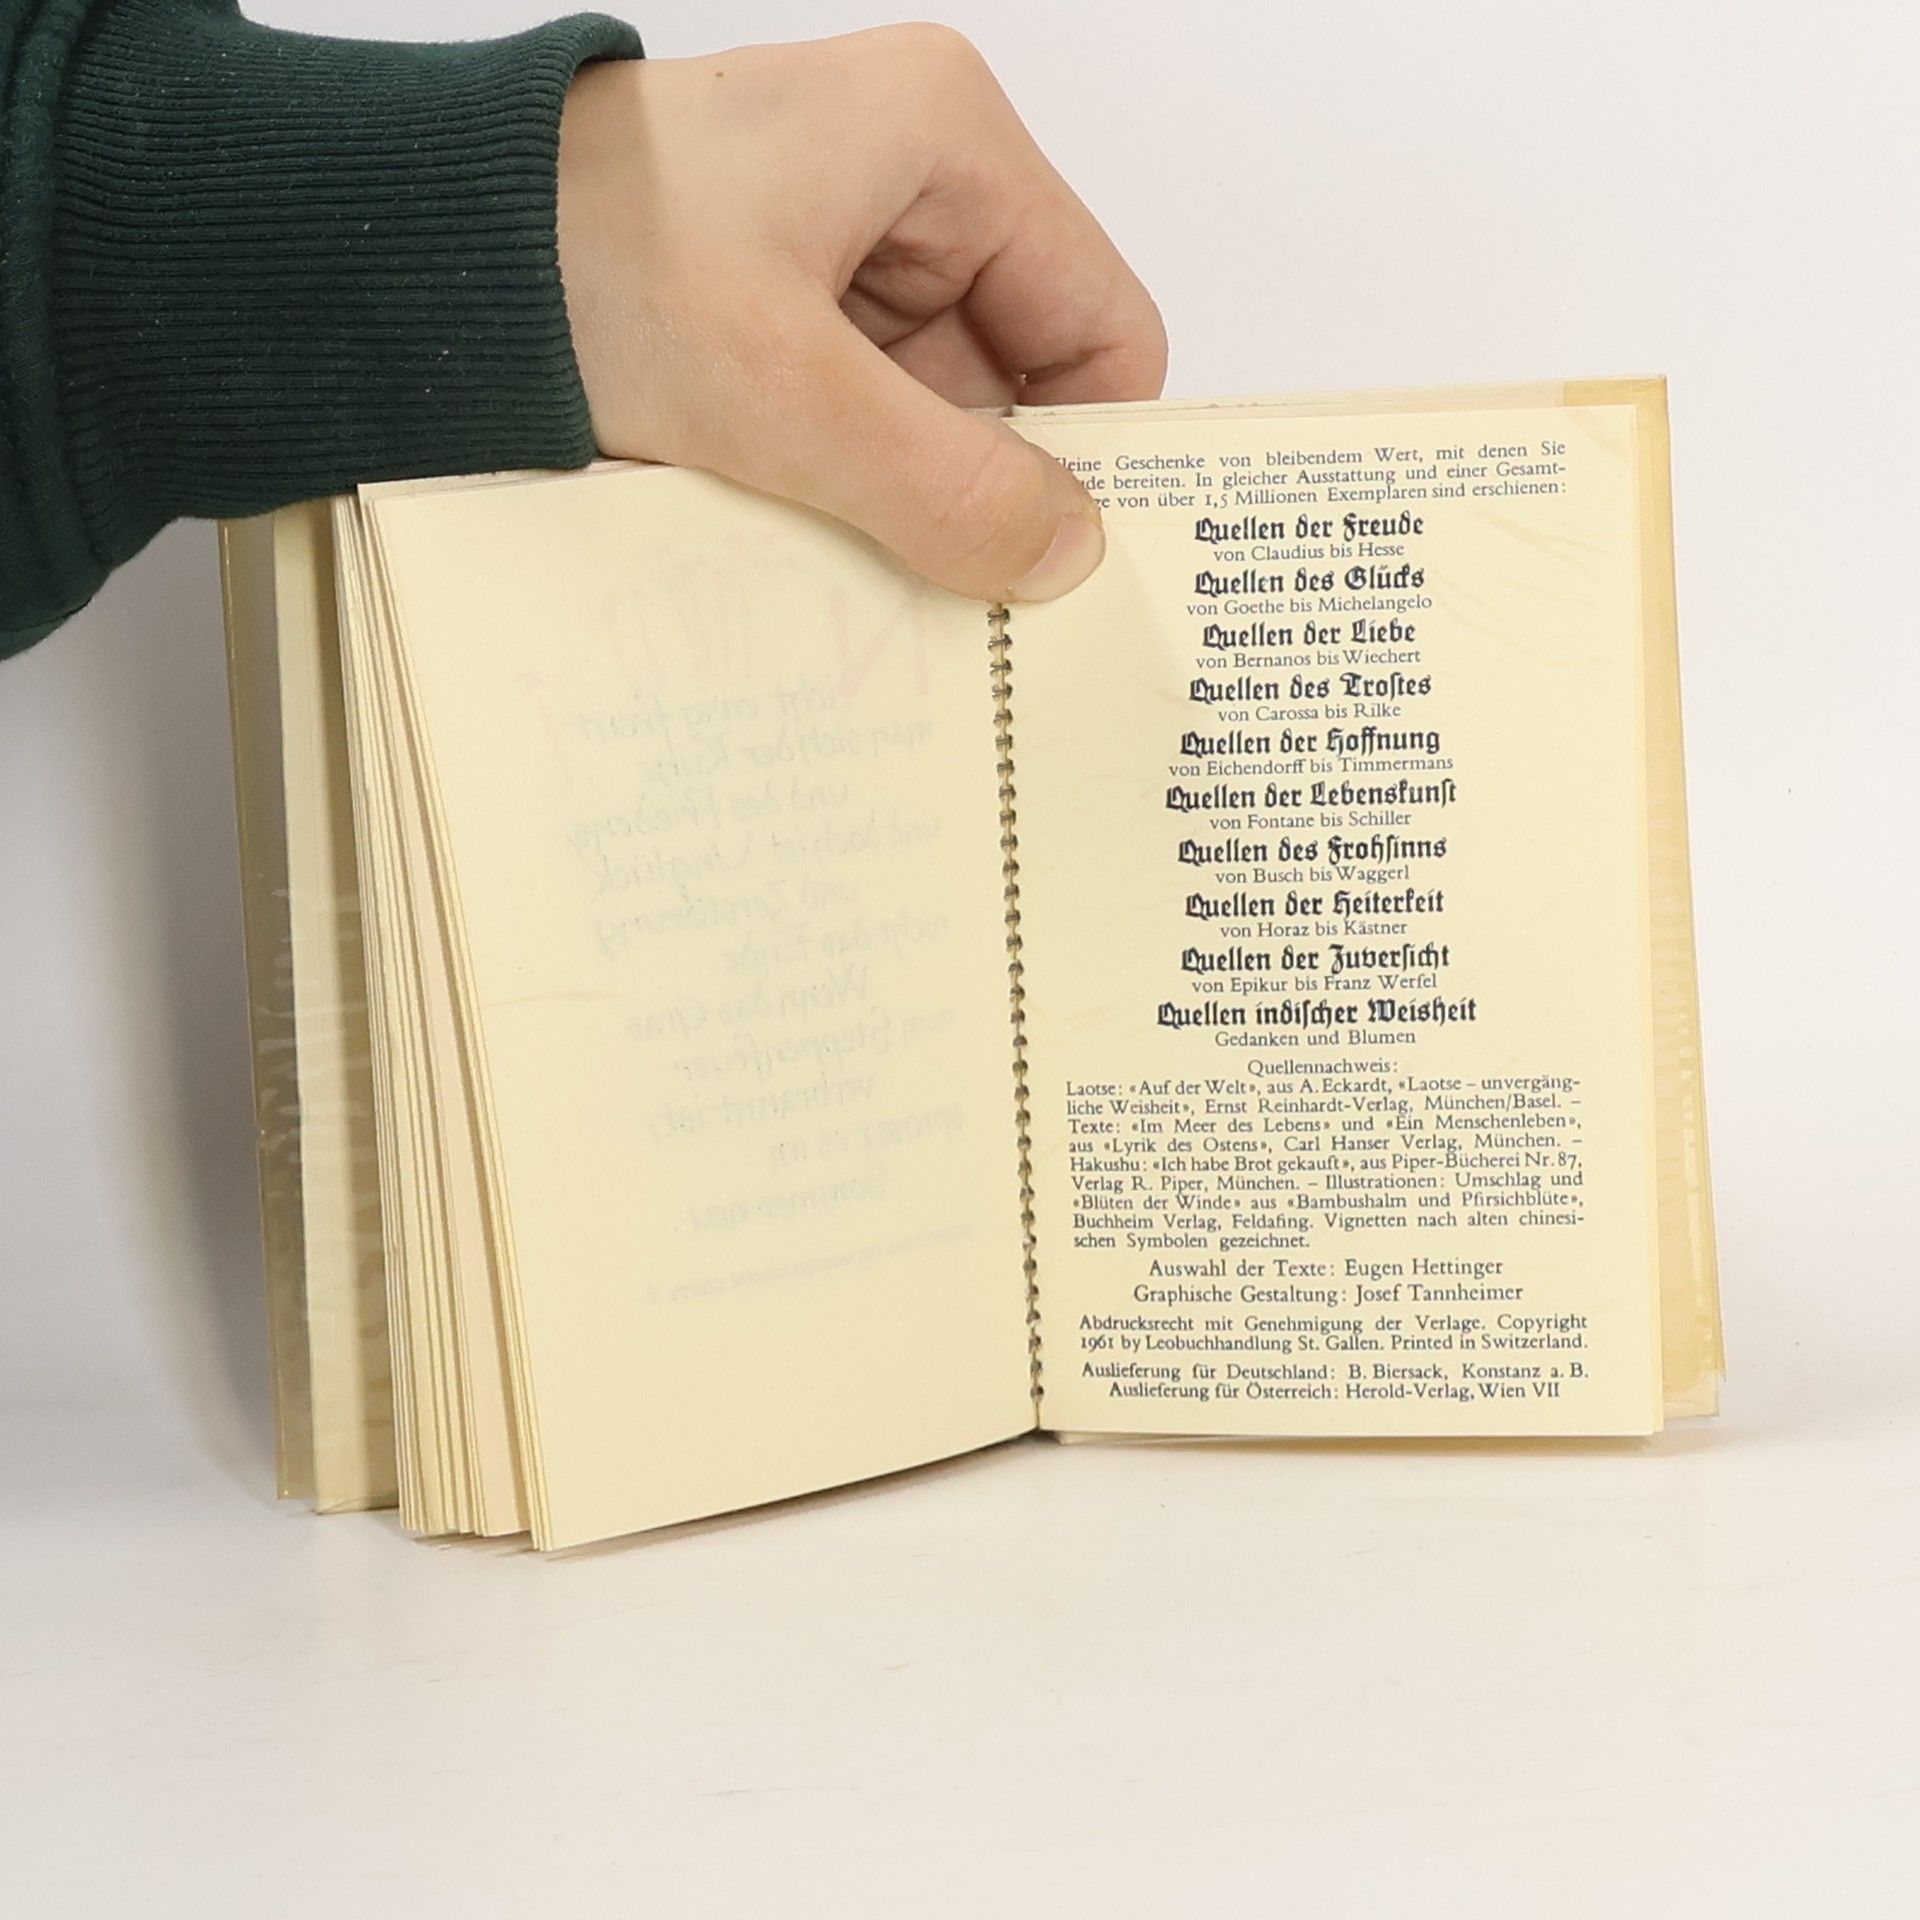 Geschenke von bleibendem Wert, mit denen Sie
bereiten. In gleicher Ausstattung und einer Gesamt-
von über 1,5 Millionen Exemplaren sind erschienen:
Quellen der Freude
von Claudius bis Hesse
Quellen des Glücks
von Goethe bis Michelangelo
Quellen der Liebe
von Bernanos bis Wiechert
Quellen des Trostes
von Carossa bis Rilke
Quellen der Hoffnung
von Eichendorff bis Timmermans
Quellen der Lebenskunst
von Fontane bis Schiller
Quellen des Frohsinns
von Busch bis Waggerl
Quellen der Heiterkeit
von Horaz bis Kästner
Quellen der Zuversicht
von Epikur bis Franz Werfel
Quellen indischer Weisheit
Gedanken und Blumen
Quellennachweis:
Laotse: «Auf der Welt», aus A. Eckardt, «Laotse – unvergäng-
liche Weisheit», Ernst Reinhardt-Verlag, München/Basel. –
Texte: «Im Meer des Lebens» und «Ein Menschenleben»,
aus «Lyrik des Ostens», Carl Hanser Verlag, München. –
Hakushu: «Ich habe Brot gekauft», aus Piper-Bücherei Nr. 87,
Verlag R. Piper, München. – Illustrationen: Umschlag und
«Blüten der Winde» aus «Bambushalm und Pfirsichblüte»,
Buchheim Verlag, Feldafing. Vignetten nach alten chinesi-
schen Symbolen gezeichnet.
Auswahl der Texte: Eugen Hettinger
Graphische Gestaltung: Josef Tannheimer
Abdrucksrecht mit Genehmigung der Verlage. Copyright
1961 by Leobuchhandlung St. Gallen. Printed in Switzerland.
Auslieferung für Deutschland: B. Biersack, Konstanz a. B.
Auslieferung für Österreich: Herold-Verlag, Wien VII